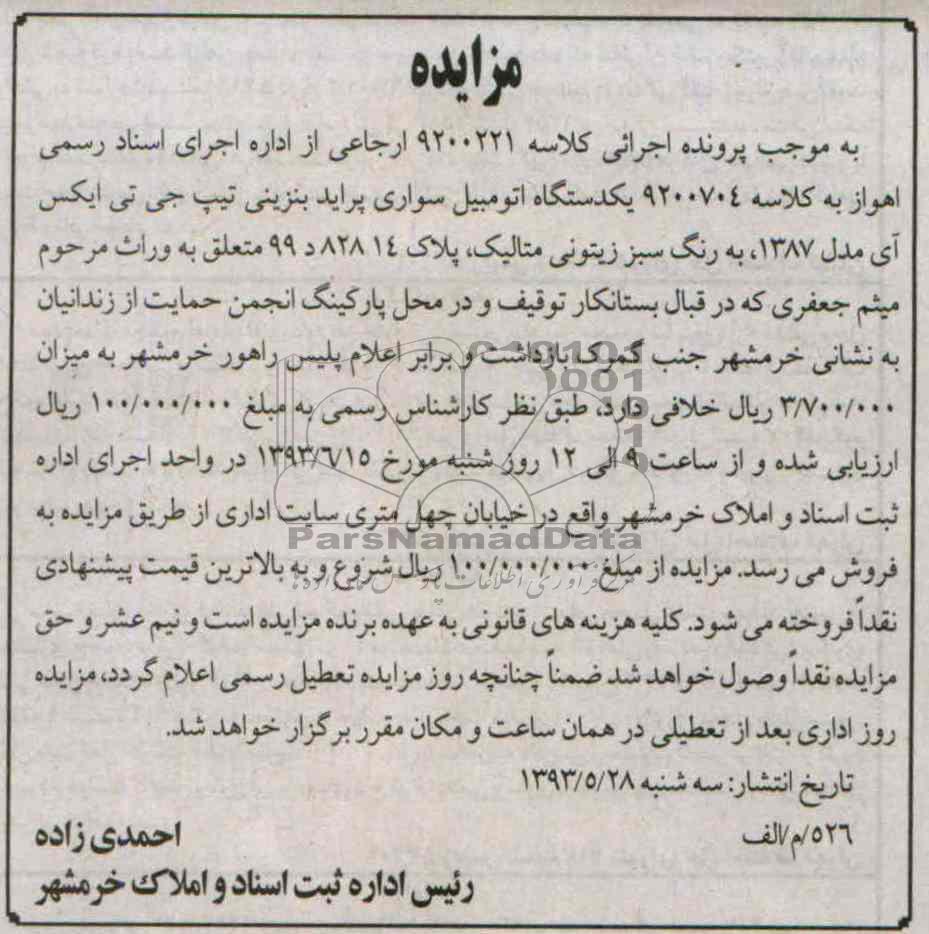 مزایده
به موجب پرونده اجرائی کلاسه ۹۲۰۰۲۲۱ ارجاعی از اداره اجرای اسناد رسمی
اهواز به کلاسه ۹۲۰۰۷۰۴ یکدستگاه اتومبیل سواری پراید بنزینی تیپ جی تی ایکس
آی مدل ۱۳۸۷، به رنگ سبز زیتونی متالیک، پلاک ۱۴ ۸۲۸ د ۹۹ متعلق به وراث مرحوم
میثم جعفری که در قبال بستانکار توقیف و در محل پارکینگ انجمن حمایت از زندانیان
به نشانی خرمشهر جنب گمرک بازداشت و برابر اعلام پلیس راهور خرمشهر به میزان
۳/۷۰۰/۰۰۰ ریال خلافی دارد، طبق نظر کارشناس رسمی به مبلغ ۱۰۰/۰۰۰/۰۰۰ ریال
ارزیابی شده و از ساعت ۹ الی ۱۲ روز شنبه مورخ ۱۳۹۳/۶/۱۵ در واحد اجرای اداره
ثبت اسناد و املاک خرمشهر واقع در خیابان چهل متری سایت اداری از طریق مزایده به
فروش می رسد. مزایده از مبلغ ۱۰۰/۰۰۰/۰۰۰ ریال شروع و به بالاترین قیمت پیشنهادی
نقداً فروخته می شود. کلیه هزینه های قانونی به عهده برنده مزایده است و نیم عشر و حق
مزایده نقداً وصول خواهد شد ضمناً چنانچه روز مزایده تعطیل رسمی اعلام گردد، مزایده
روز اداری بعد از تعطیلی در همان ساعت و مکان مقرر برگزار خواهد شد.
تاریخ انتشار: سه شنبه ۱۳۹۳/۵/۲۸
۵۲۶/م/الف
احمدی زاده
رئیس اداره ثبت اسناد و املاک خرمشهر
ParsNamadData